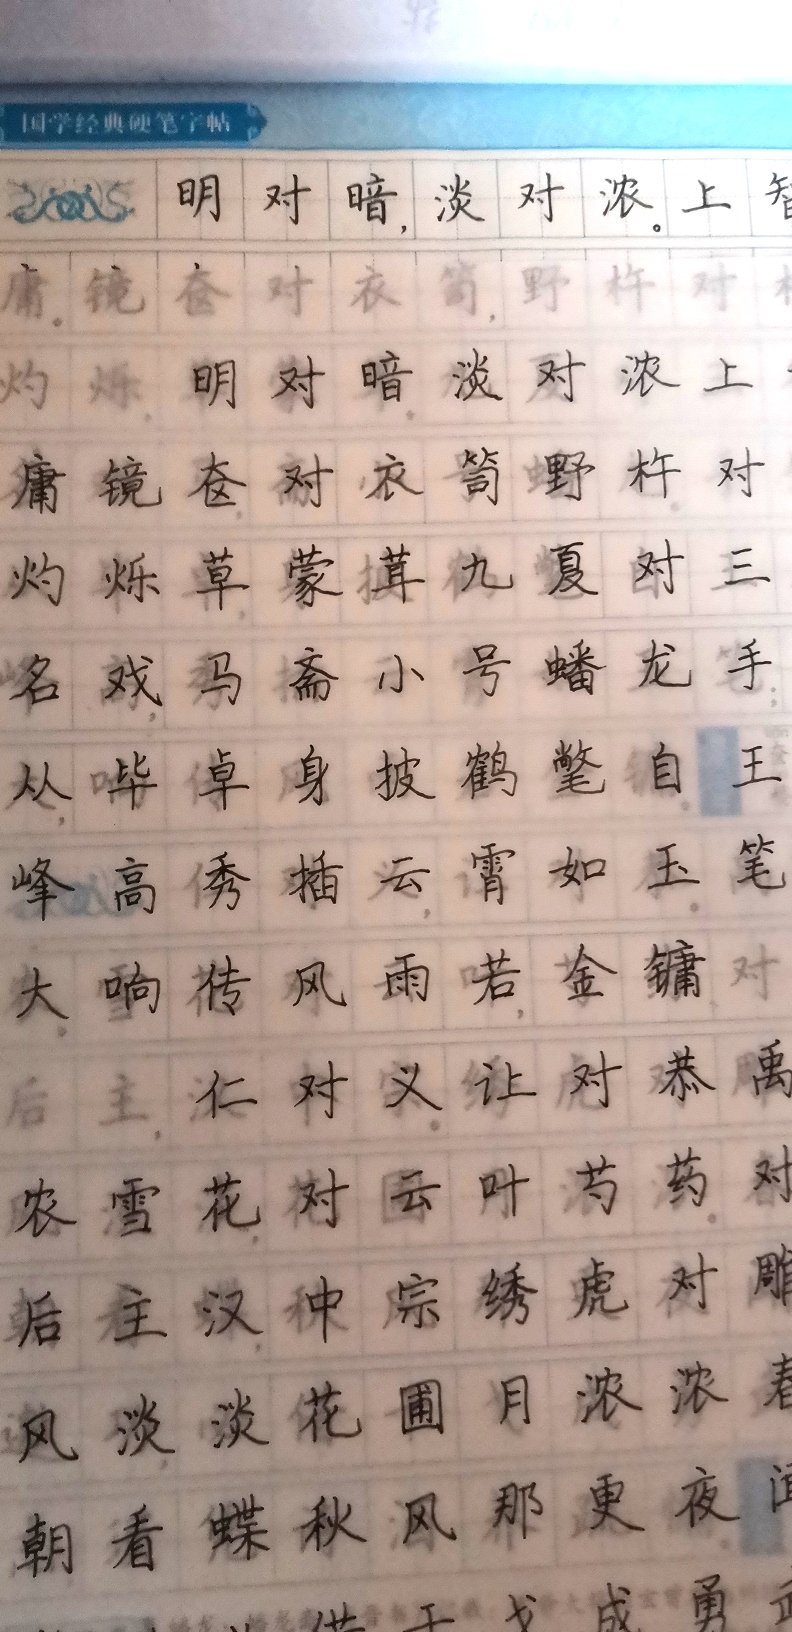 国学经典硬笔字帖
明对暗，淡对浓。上智
庸。镜奁对衣笥，野杵对
灼烁，明对暗淡对浓上
庸镜奁对衣笥野杵对
灼烁草蒙茸九夏对三
名戏马斋小号蟠龙手
从毕卓身披鹤氅自王
峰高秀插云霄如玉笔
大响传风雨若金镛对
后主，仁对义让对恭禹
农雪花对云叶芍药对
后主汉中宗绣虎对雕
风淡淡花圃月浓浓春
朝看蝶秋风那更夜闻
干戈成勇武